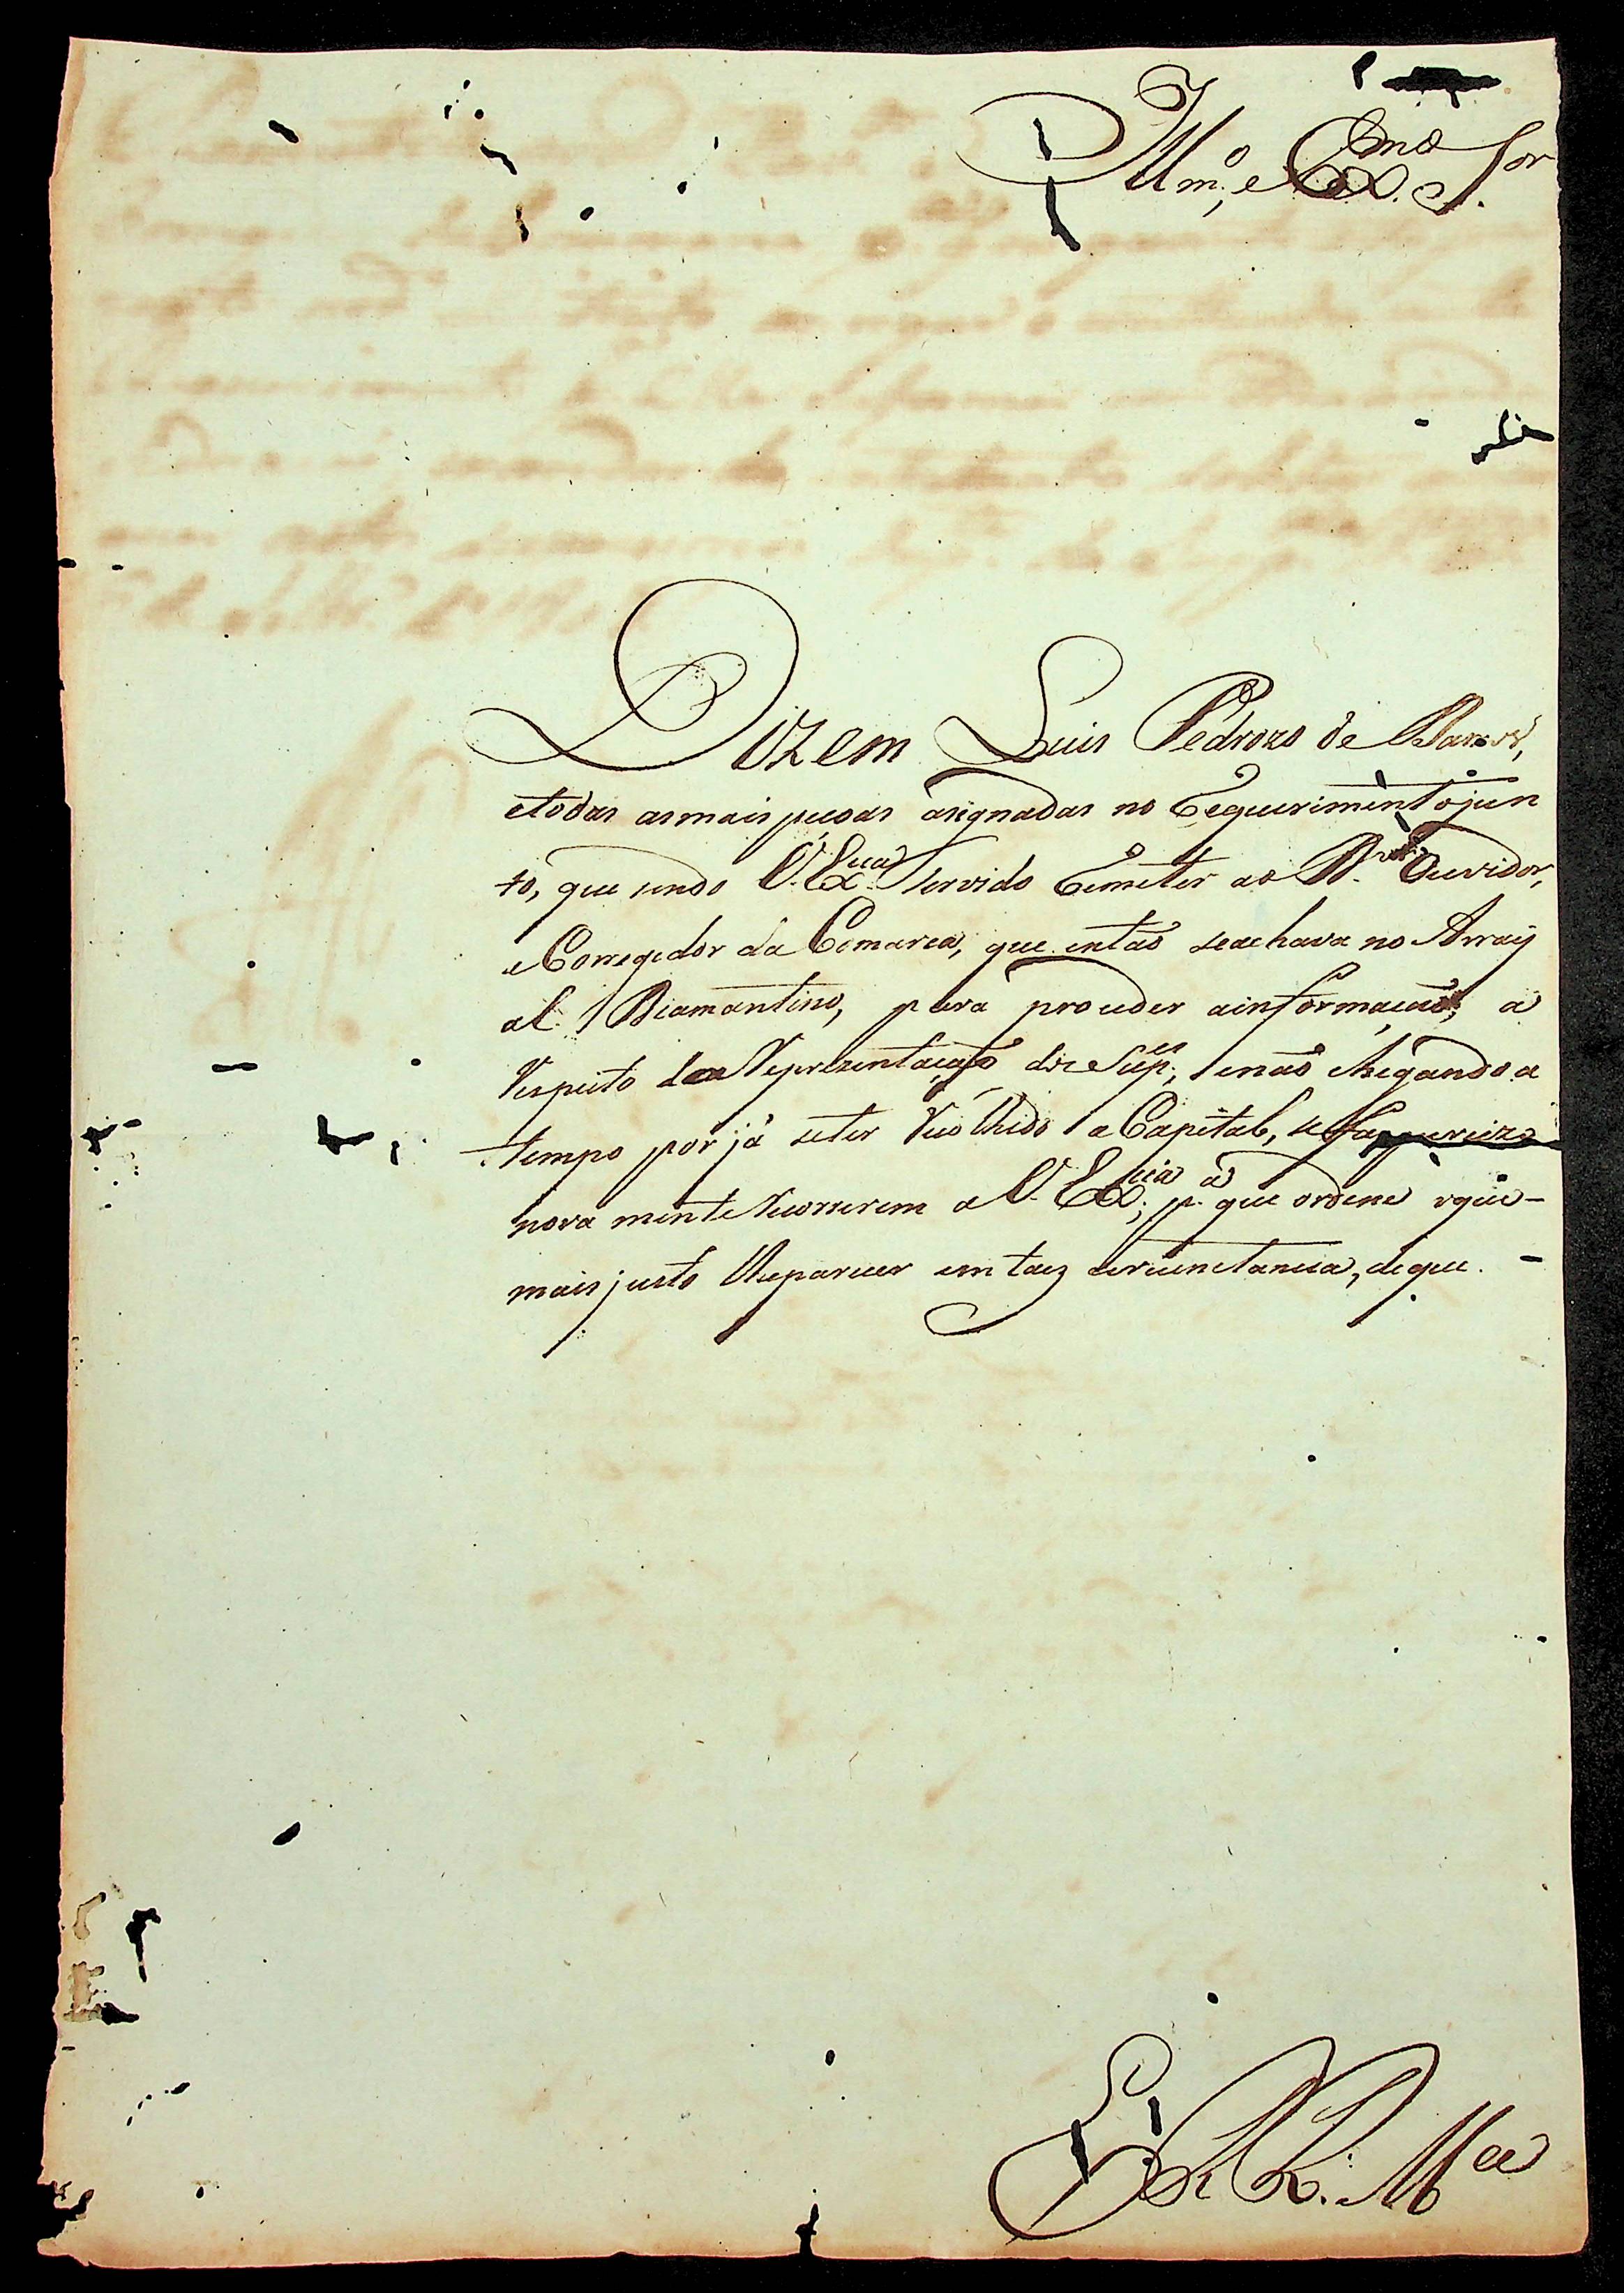 Illmº, e Exmº Sor
Dizem Luis Pedrozo de Barros,
etodas asmais pesoas asignadas no Requerimento jun
to, que sendo V. Excia Servido Remeter ao Dr Ouvidor,
e Corregedor da Comarca, que entaõ seachava no Array
al Diamantino, para proceder ainformaçaõ, a
Respeito da Reprezentaçaõ dos Supes, enaõ chegando a
tempo por já seter Recolhido a Capital, se faz percizo
nova mente Recorrerem a V. Excia; pa que ordene oque-
mais justo lheparecer em taes circunctancia, deque.
E R. Mce